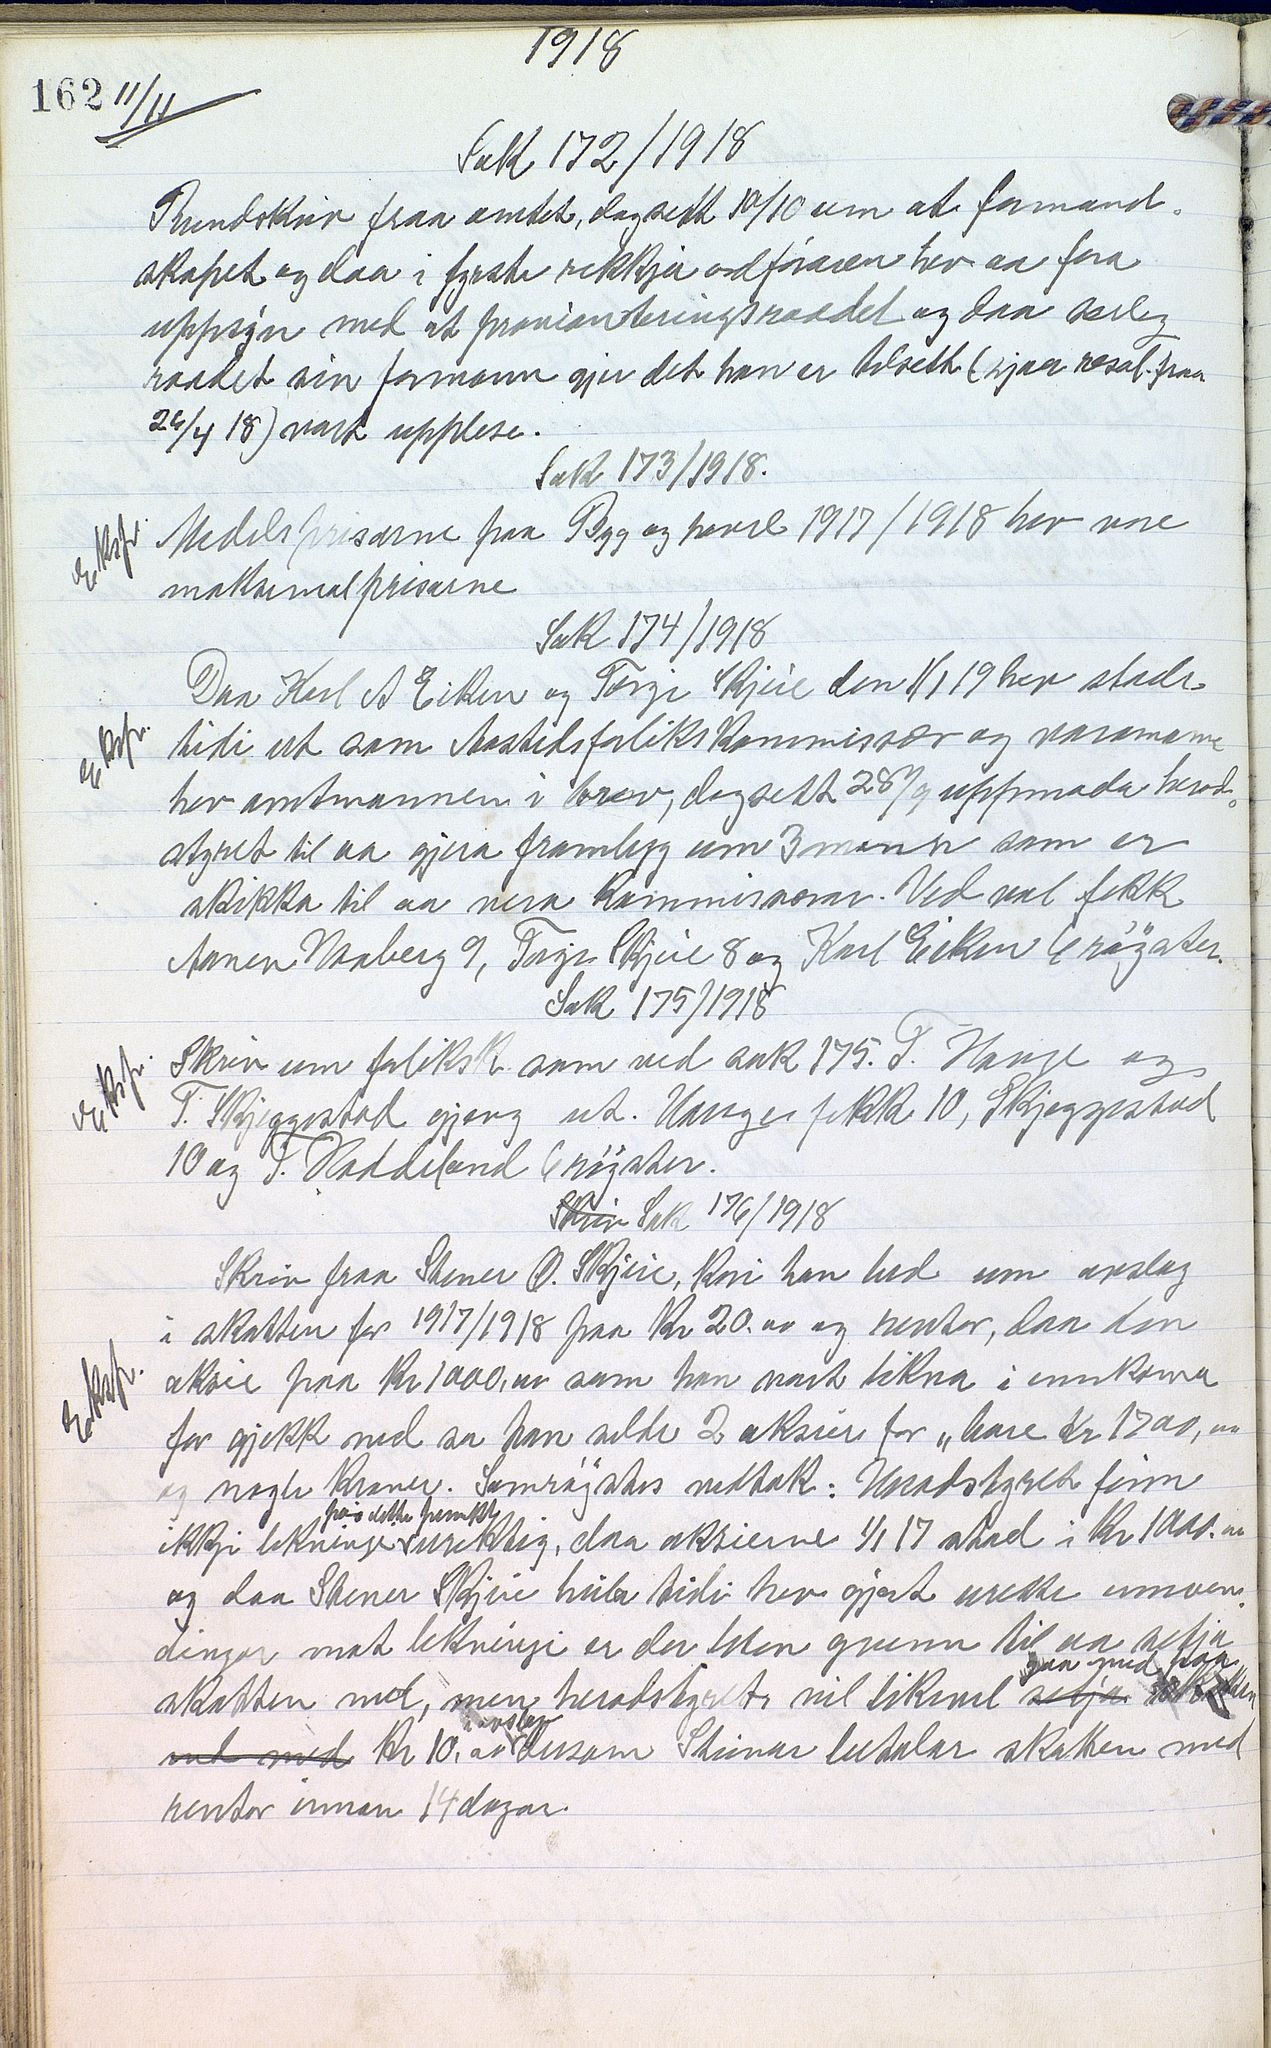 1918
162 11/11
Sak 172/1918
Rundskriv fraa amtet, dagsett 10/10 um at formand-
skapet og daa i fyrste rekkja ordføraren hev aa føra
uppsyn med at provianteringsraadet og daa serleg
raadet sin formann gjer det han er tilsett (kjær resol. fraa
26/4 18) vart upplese.
Sak 173/1918.
Ekspr. Medelsprisarne paa Bygg og havre 1917/1918 hev vore
maksimalprisarne
Sak 174/1918
Daa Karl A Eiken og Torgr Skjeie den 1/1 19 hev stade
Ekspr. tidi ut som Aastedsforlikskommissær og varamann
hev amtmannen i brev, dagsett 28/9 uppmoda herad-
styret til aa gjera framlegg um 3 menn som er
skikka til aa vera kommissærar. Ved val fekk
Aanen Vaaberg 9, Torgr Skjeie 8 og Karl Eiken 6 røyster.
Sak 175/1918
Ekspr. Skriv um forliksk. som ved sak 175. T. Hauge og
T. Skjeggestad gjeng ut. Hauge fekk 10, Skjeggestad
10 og T. Haddeland 6 røyster.
Skriv Sak 176/1918
Skriv fraa Stener O. Skjeie, kori han bed um avslag
i skatten for 1917/1918 paa Kr 20.00 og rentor, daa den
Ekspr. aksie paa Kr 1000,00 som han vart likna i innkoma
for gjekk ned so han selde 2 aksier for „bare Kr 1700,00
og nogle Kroner. Samrøystes vedtak: Heradstyret finn
paa dette punkt
ikkje likningi uriktig, daa aksierne 1/1 17 stod i Kr 1000.00
og daa Stener Skjeie heile tidi hev gjort urette innven-
dingar mot likningi er der liten grunn til aa setja
gaa med paa
skatten ned, men heradstyret vil likevel setja skatten
avslag
ned med Kr 10,00 dersom Steinar betalar skatten med
rentor innan 14 dagar.